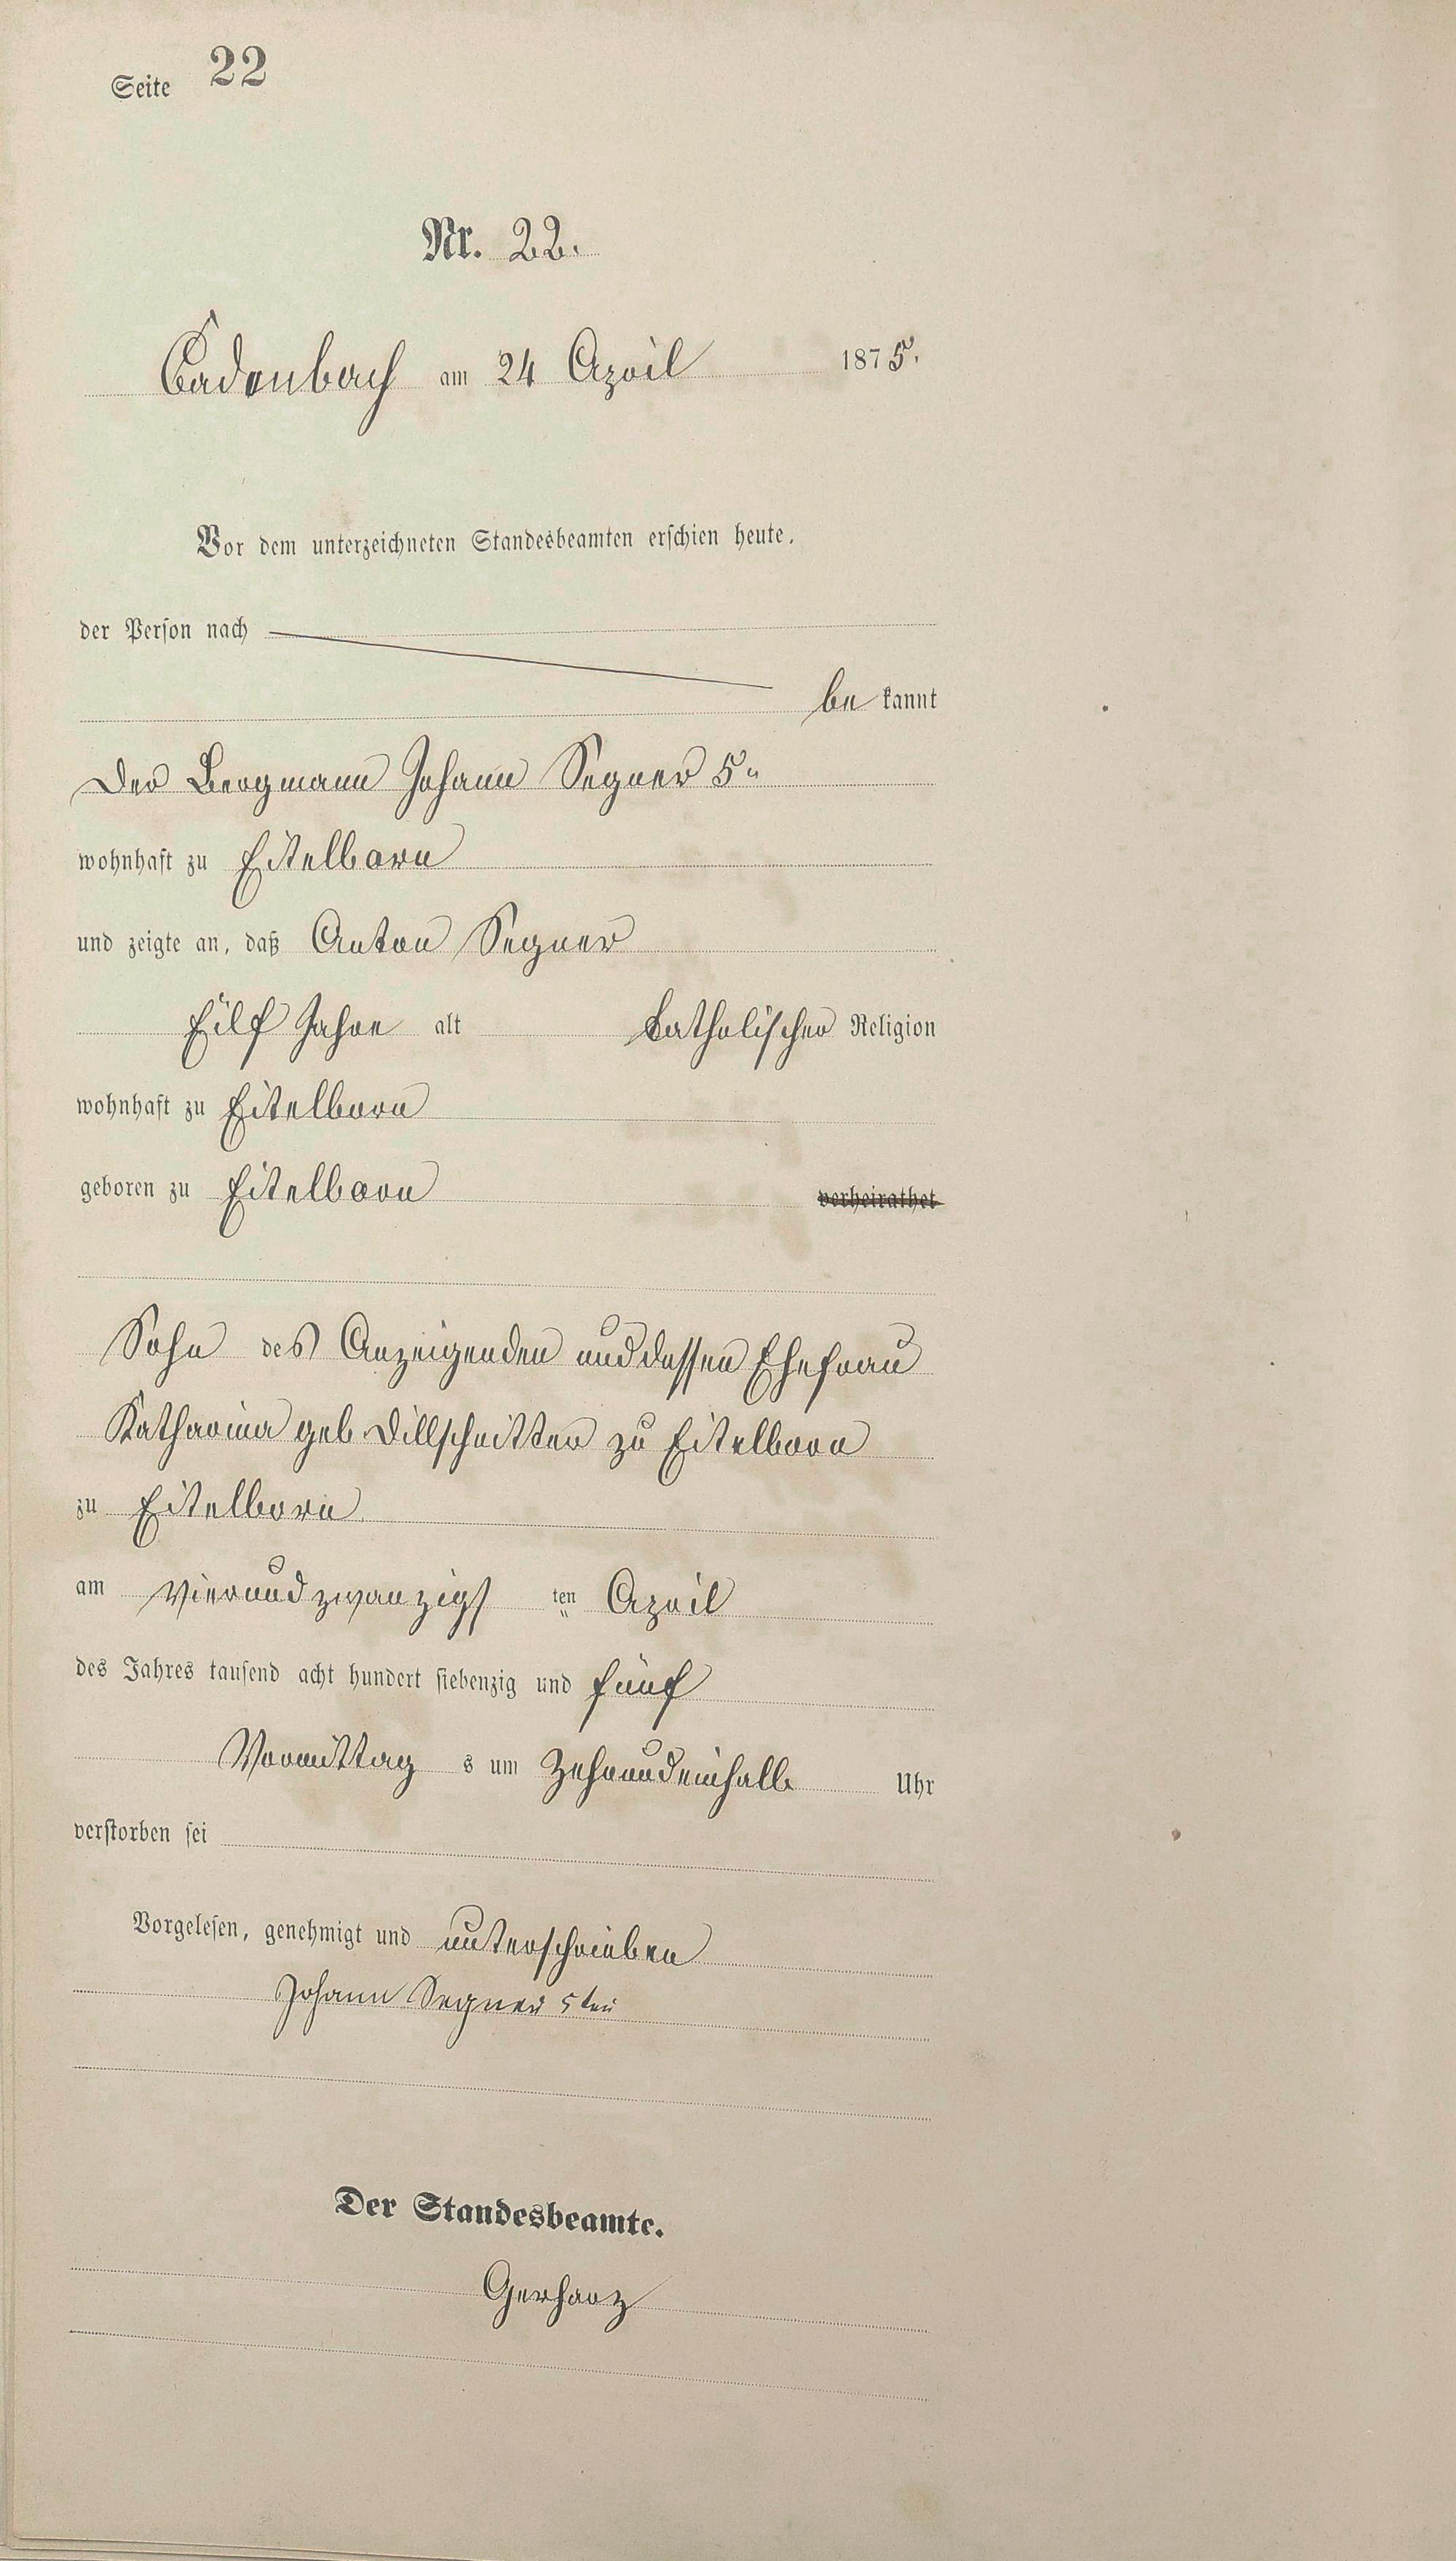 Seite 22
Nr. 22.
Cadenbach am 24 April 1875.
Vor dem unterzeichneten Standesbeamten erschien heute,
der Person nach
be kannt
Der Bergmann Johann Segner 5"
wohnhaft zu Eitelborn
und zeigte an, daß Anton Segner
Eilf Jahre alt katholischer Religion
wohnhaft zu Eitelborn
geboren zu Eitelborn verheirathet
Sohn des Anzeigenden und dessen Ehefrau
Katharina geb. Dillschnitter zu Eitelborn
zu Eitelborn
am vierundzwanzigs ten April
des Jahres tausend acht hundert siebenzig und fünf
Vormittag s um Zehnundeinhalb Uhr
verstorben sei
Vorgelesen, genehmigt und unterschrieben
Johann Segner 5ten
Der Standesbeamte.
Gerharz